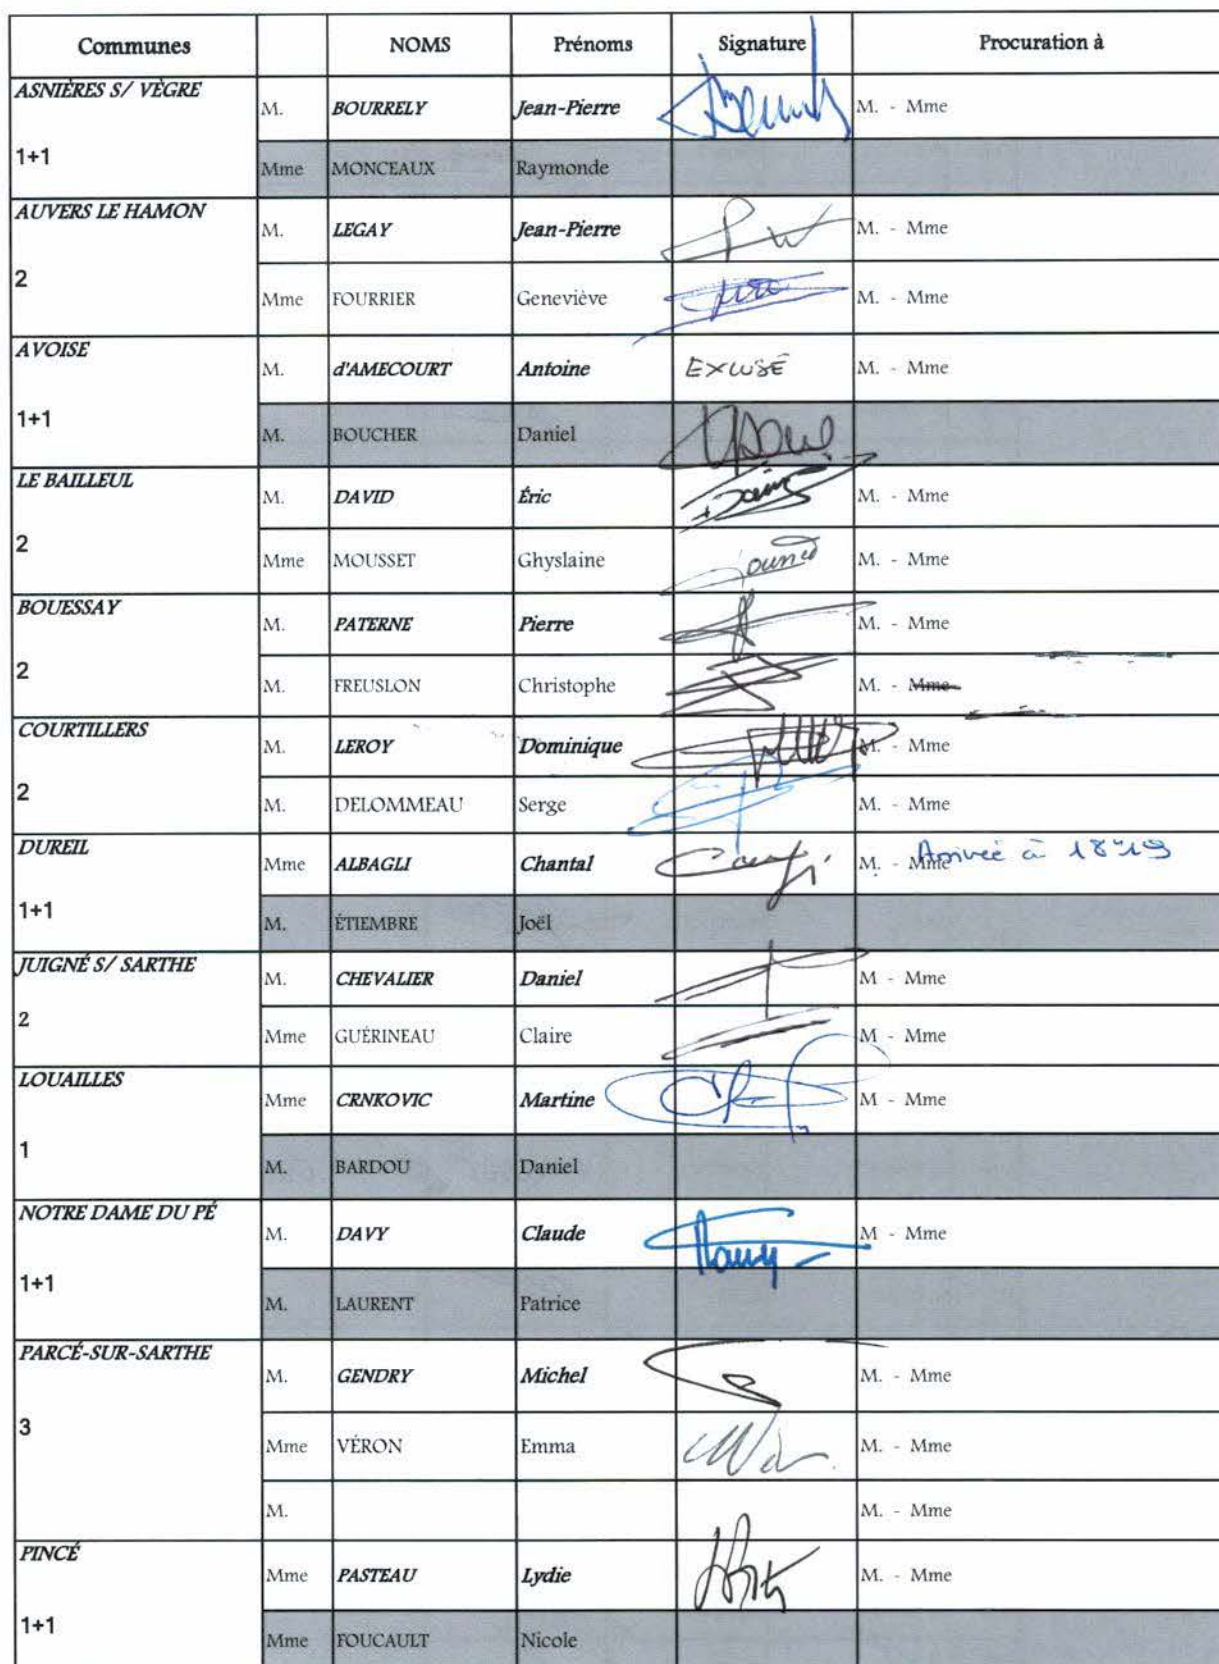 Communes NOMS Prénoms Signature Procuration à
ASNIÈRES S/ VÈGRE
M. BOURRELY Jean-Pierre M. - Mme
1+1
Mme MONCEAUX Raymonde
AUVERS LE HAMON
M. LEGAY Jean-Pierre M. - Mme
2
Mme FOURRIER Geneviève M. - Mme
AVOISE
M. d'AMECOURT Antoine EXCUSÉ M. - Mme
1+1
M. BOUCHER Daniel
LE BAILLEUL
M. DAVID Éric M. - Mme
2
Mme MOUSSET Ghyslaine M. - Mme
BOUESSAY
M. PATERNE Pierre M. - Mme
2
M. FREUSLON Christophe M. - Mme
COURTILLERS
M. LEROY Dominique M. - Mme
2
M. DELOMMEAU Serge M. - Mme
DUREIL
Mme ALBAGLI Chantal M. - Mme Arrivée à 18h19
1+1
M. ÉTIEMBRE Joël
JUIGNÉ S/ SARTHE
M. CHEVALIER Daniel M - Mme
2
Mme GUÉRINEAU Claire M - Mme
LOUAILLES
Mme CRNKOVIC Martine M - Mme
1
M. BARDOU Daniel
NOTRE DAME DU PÉ
M. DAVY Claude M - Mme
1+1
M. LAURENT Patrice
PARCÉ-SUR-SARTHE
M. GENDRY Michel M. - Mme
3
Mme VÉRON Emma M. - Mme
M. M. - Mme
PINCÉ
Mme PASTEAU Lydie M. - Mme
1+1
Mme FOUCAULT Nicole